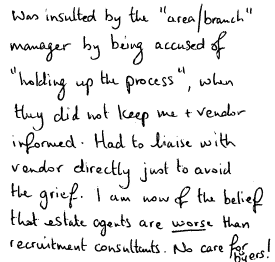 Was insulted by the "area/branch"
manager by being accused of
"holding up the process", when
they did not keep me + vendor
informed. Had to liaise with
vendor directly just to avoid
the grief. I am now of the belief
that estate agents are worse than
recruitment consultants. No care for
buyers!